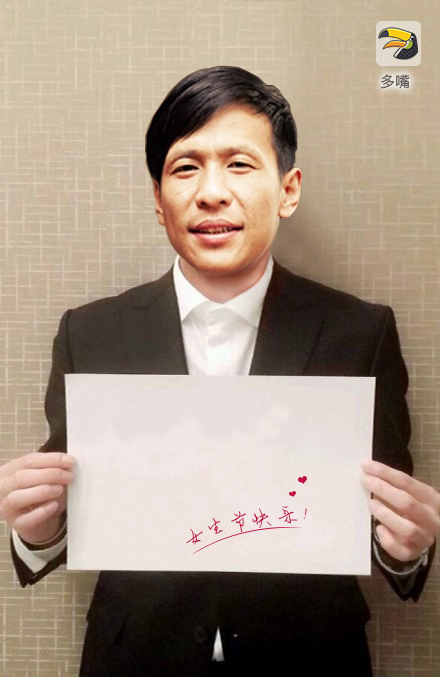 多嘴
女生节快乐!